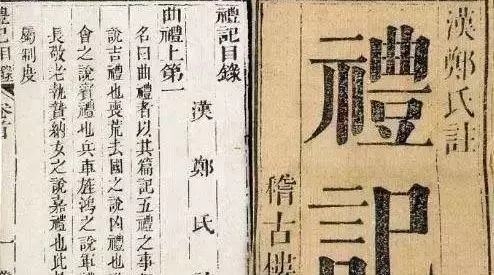 漢鄭氏註
禮記
稽古樓
禮記目錄
漢鄭氏
曲禮上第一
名曰曲禮者以其篇記五禮之事
說吉禮也喪荒去國之說凶禮也
會之說賓禮也兵車旌鴻之說軍
長敬老執贄納女之說嘉禮也此
屬制度
禮記目錄 卷首